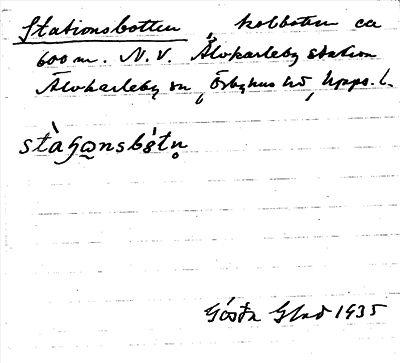 Stationsbotten, kolbotten ca
600 m. N.V. Älvkarleby station
Älvkarleby sn, Örbyhus hd, Upps. l.
Gösta Glad 1935